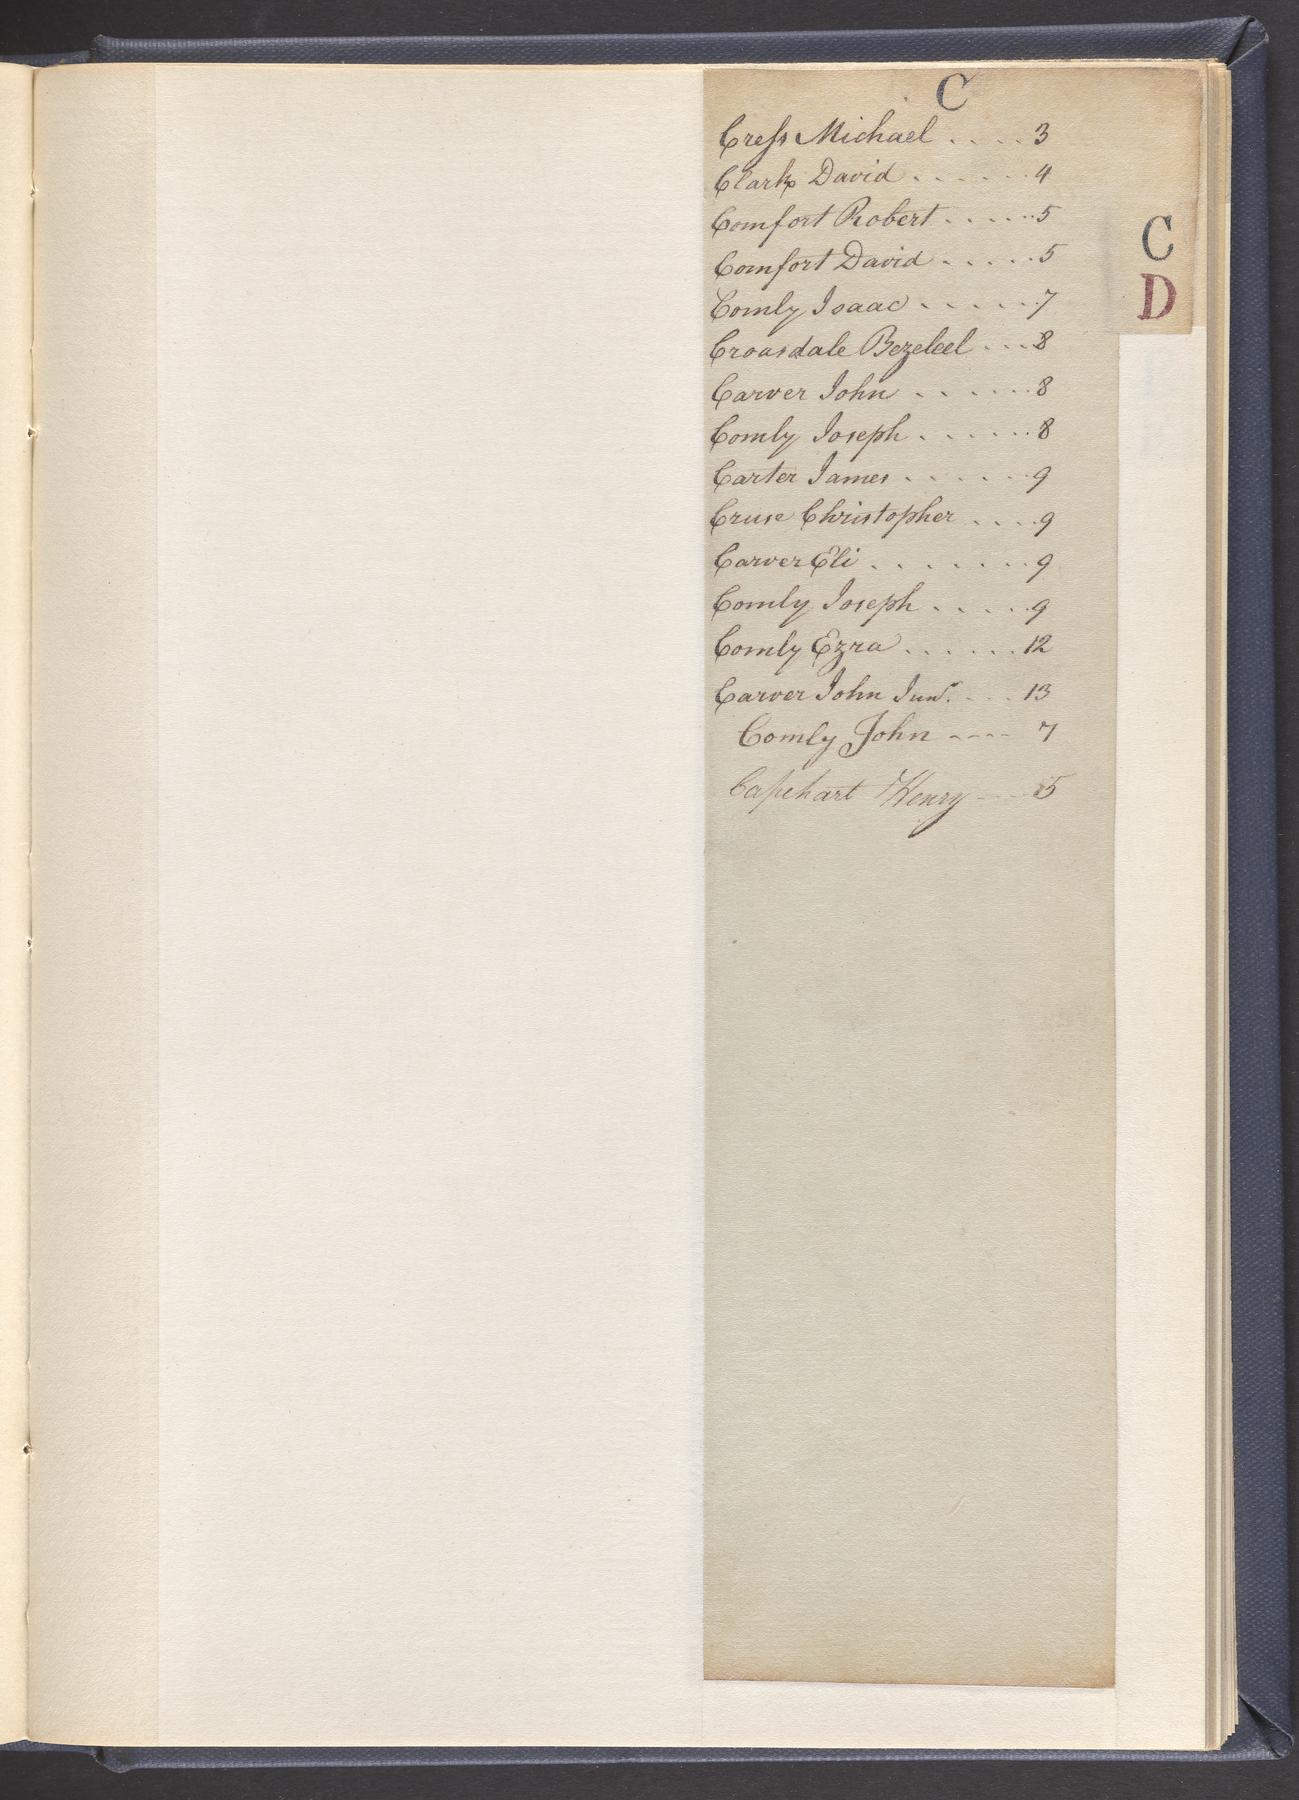 C
Creſs Michael . . . . 3
Clark David . . . . . . 4
Comfort Robert . . . . . 5
Comfort David . . . . . 5
Comly Isaac . . . . . . 7
Croasdale Bezeleel . . . 8
Carver John . . . . . . 8
Comly Joseph . . . . . . 8
Carter James . . . . . . 9
Cruse Christopher . . . . 9
Carver Eli . . . . . . . . 9
Comly Joseph . . . . . 9
Comly Ezra . . . . . . 12
Carver John Junr. . . . 13
Comly John ---- 7
Capehart Henry --- 15
C
D